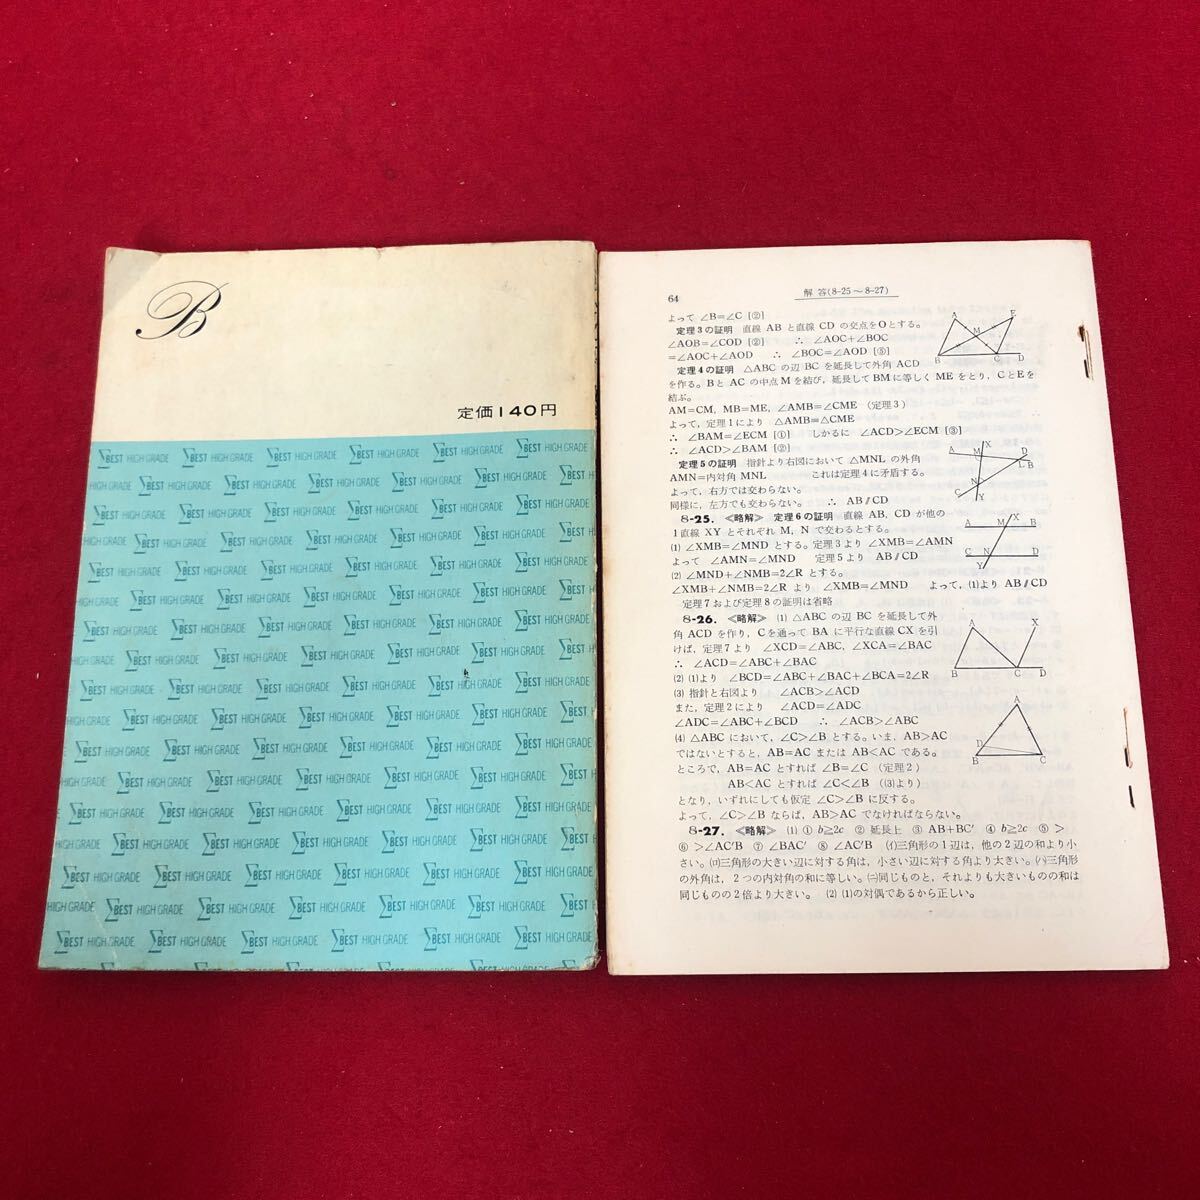 B
定価140円
ΣBEST HIGH GRADE ΣBEST HIGH GRADE ΣBEST HIGH GRADE ΣBEST HIGH GRADE ΣBEST HIGH GRADE ΣBEST HIGH GRADE
64
解答(8-25～8-27)
よって ∠B=∠C [②]
定理3の証明 直線 AB と直線 CD の交点をOとする。
∠AOB=∠COD [②] ∴ ∠AOC+∠BOC
=∠AOC+∠AOD ∴ ∠BOC=∠AOD [③]
定理4の証明 △ABC の辺 BC を延長して外角 ACD
を作る。Bと AC の中点Mを結び，延長して BM に等しく ME をとり，CとEを
結ぶ。
AM=CM, MB=ME, ∠AMB=∠CME (定理3)
よって，定理1により △AMB≡△CME
∴ ∠BAM=∠ECM [①] しかるに ∠ACD>∠ECM [③]
∴ ∠ACD>∠BAM [②]
定理5の証明 指針より右図において △MNL の外角
AMN=内対角 MNL これは定理4に矛盾する。
よって，右方では交わらない。
同様に，左方でも交わらない。 ∴ AB∥CD
8-25. 《略解》 定理6の証明 直線 AB, CD が他の
1直線 XY とそれぞれ M, N で交わるとする。
(1) ∠XMB=∠MND とする。定理3より ∠XMB=∠AMN
よって ∠AMN=∠MND 定理5より AB∥CD
(2) ∠MND+∠NMB=2∠R とする。
∠XMB+∠NMB=2∠R より ∠XMB=∠MND よって，(1)より AB∥CD
定理7および定理8の証明は省略
8-26. 《略解》 (1) △ABC の辺 BC を延長して外
角 ACD を作り，Cを通って BA に平行な直線 CX を引
けば，定理7より ∠XCD=∠ABC, ∠XCA=∠BAC
∴ ∠ACD=∠ABC+∠BAC
(2) (1)より ∠BCD=∠ABC+∠BAC+∠BCA=2∠R
(3) 指針と右図より ∠ACB>∠ACD
また，定理2により ∠ACD=∠ADC
∠ADC=∠ABC+∠BCD ∴ ∠ACB>∠ABC
(4) △ABC において，∠C>∠B とする。いま，AB>AC
ではないとすると，AB=AC または AB<AC である。
ところで，AB=AC とすれば ∠B=∠C (定理2)
AB<AC とすれば ∠C<∠B ((3)より)
となり，いずれにしても仮定 ∠C>∠B に反する。
よって，∠C>∠B ならば，AB>AC でなければならない。
8-27. 《略解》 (1) ① b≧2c ② 延長上 ③ AB+BC′ ④ b≧2c ⑤ >
⑥ >∠AC′B ⑦ ∠BAC′ ⑧ ∠AC′B (イ)三角形の1辺は，他の2辺の和より小
さい。(ロ)三角形の大きい辺に対する角は，小さい辺に対する角より大きい。(ハ)三角形
の外角は，2つの内対角の和に等しい。(ニ)同じものと，それよりも大きいものの和は
同じものの2倍より大きい。 (2) (1)の対偶であるから正しい。
A E M B C D
X A M D L B N C Y
X A M B C N D Y
A X B C D
A D B C